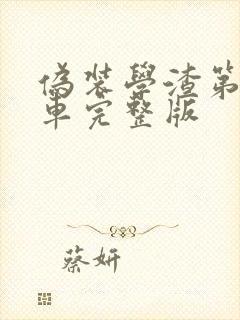 偽裝學渣第
車完整版
蔡妍